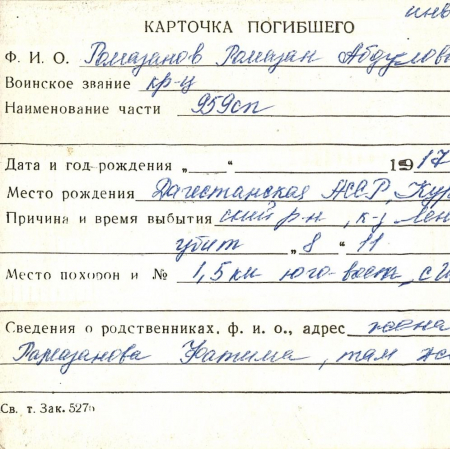 инв
КАРТОЧКА ПОГИБШЕГО
Ф. И. О. Рамазанов Рамазан Абдулов
Воинское звание кр-ц
Наименование части 959сп
Дата и год рождения „ “ 1917
Место рождения Дагестанская АССР, Кур
Причина и время выбытия ский р-н, к-з Лен
убит „8“ 11
Место похорон и № 1,5 км юго-вост.
Сведения о родственниках, ф. и. о., адрес жена
Рамазанова Фатима, там же
Св. т. Зак. 527